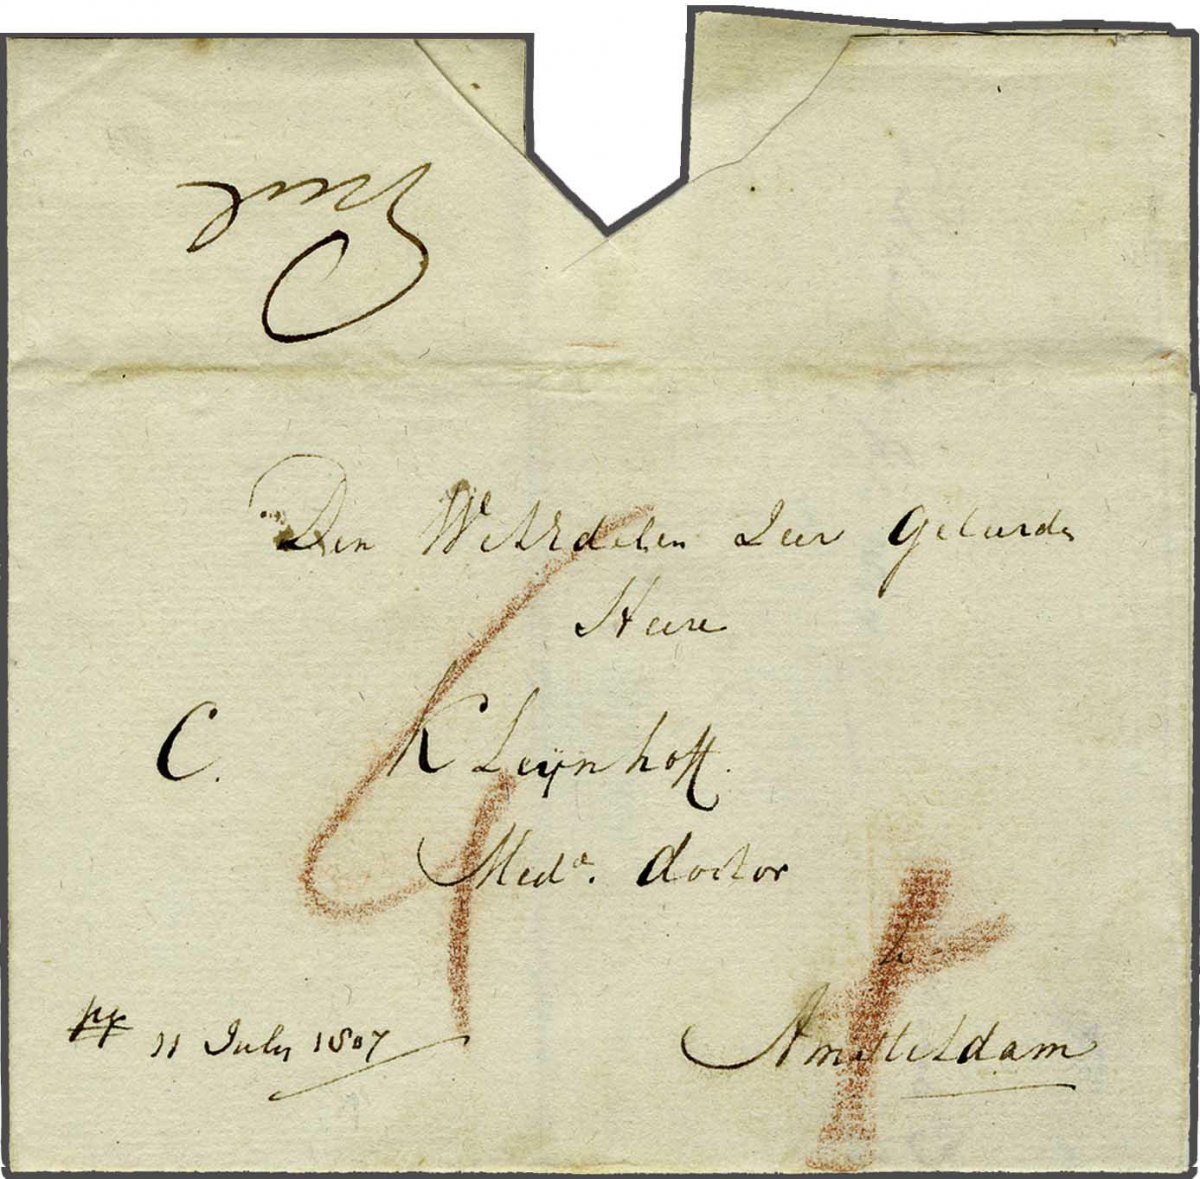 Den WelEdelen Zeer Geleerde
Heere
C. Kleijnhoff.
Med.e doctor
te
Amsteldam
11 July 1807